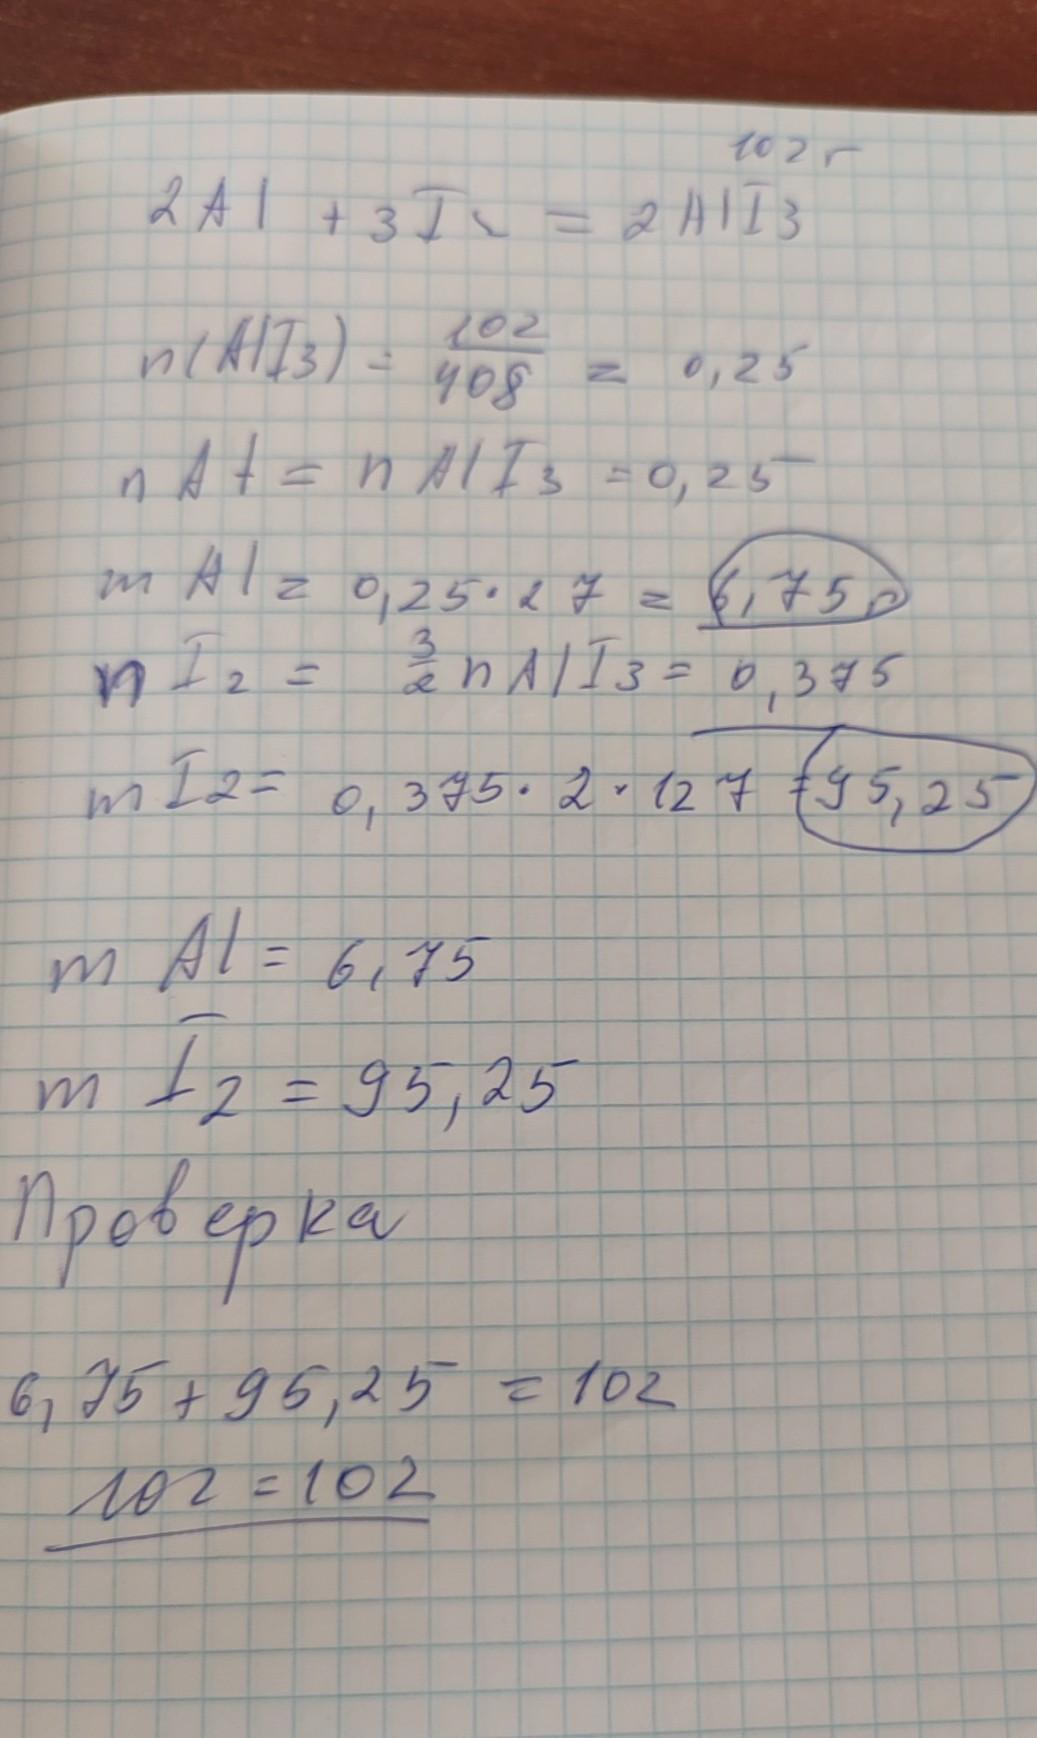 102 г
2Al + 3I2 = 2AlI3
n(AlI3) = 102/408 = 0,25
n Al = n AlI3 = 0,25
m Al = 0,25·27 = 6,75г
n I2 = 3/2 n AlI3 = 0,375
m I2 = 0,375·2·127 = 95,25
m Al = 6,75
m I2 = 95,25
Проверка
6,75 + 95,25 = 102
102 = 102